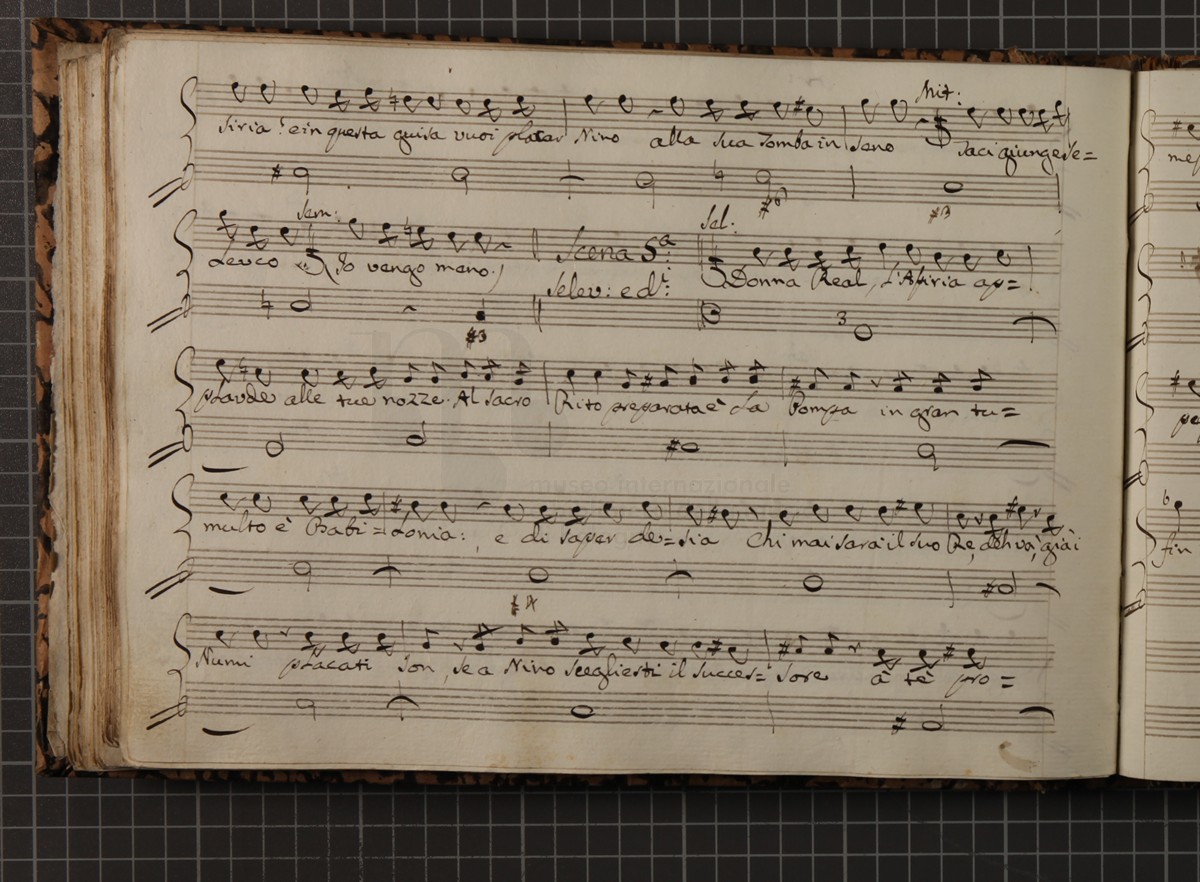 Mit:
siria! e in questa guisa vuoi placar Nino alla sua Tomba in seno Taci giunge Se=
Sem: Sel:
leuco (Io vengo meno.) Scena 5a: Donna Real, l'Assiria ap=
Seleu: e d.i:
plaude alle tue nozze. Al sacro Rito preparata è la Pompa in gran tu=
museo internazionale
multo è Babi=lonia: e di saper de=sia Chi mai sarà il suo Re, deh và, già i
Numi placati son, se a Nino scegliesti il succes=sore à tè pro=